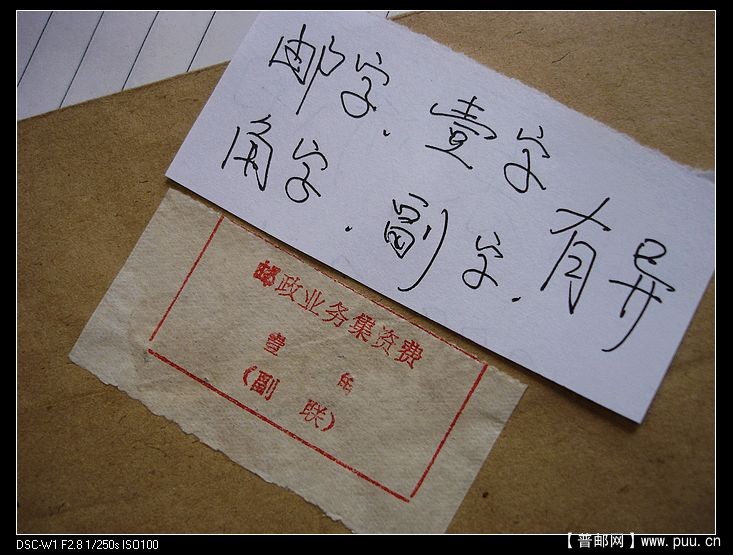 邮字.壹字
角字.副字.有异
邮政业务集资费
壹 角
(副 联)
DSC-W1 F2.8 1/250s ISO100
【普邮网】www.puu.cn